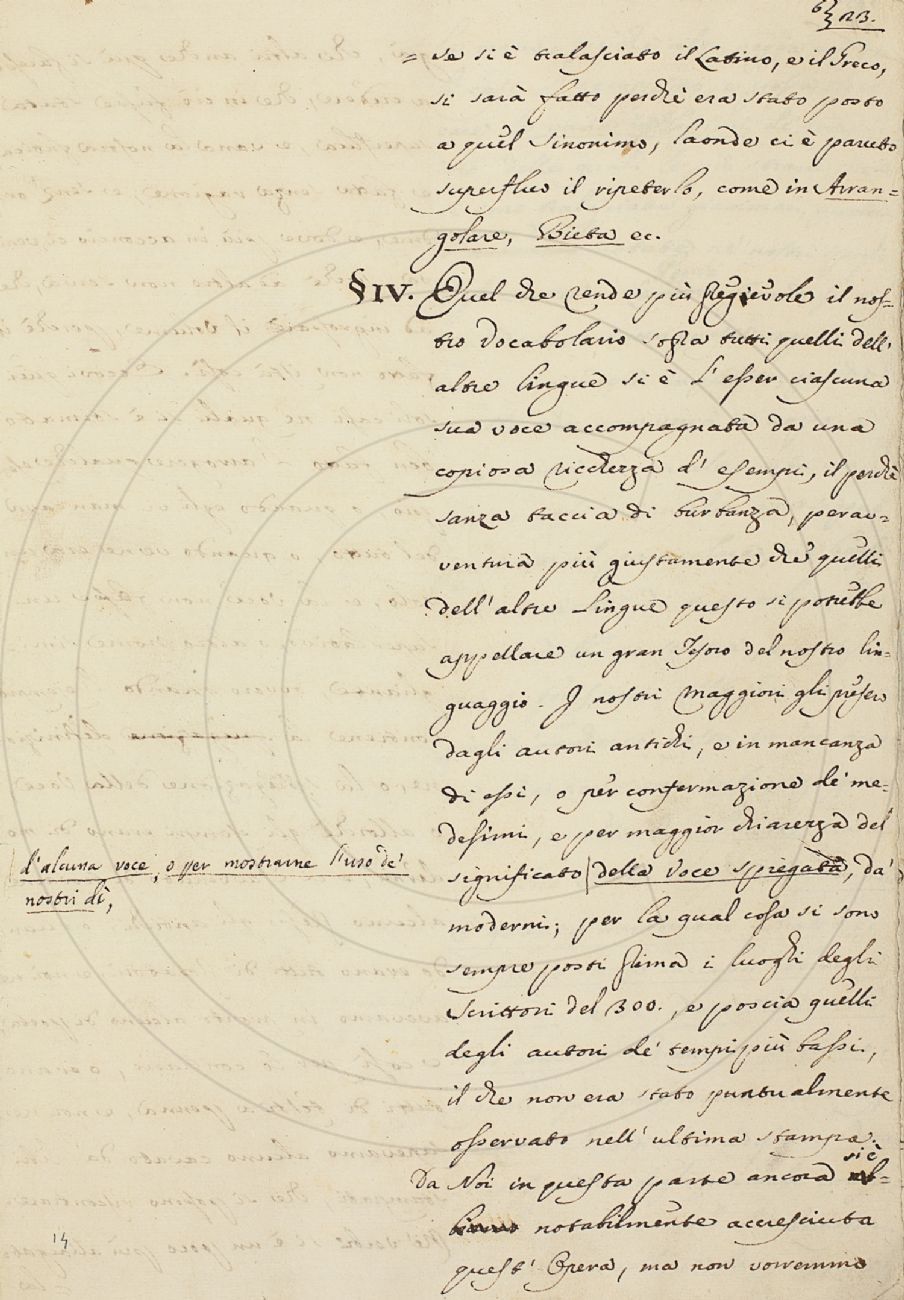 623.
= se si è tralasciato il Latino, e il Greco,
si sarà fatto perchè era stato posto
a quel Sinonimo, laonde ci è paruto
superfluo il ripeterlo, come in Arran=
golare, Bieta ec.
§ IV. Quel che rende più pregievole il nos=
tro Vocabolario sopra tutti quelli dell'
altre lingue si è l'esser ciascuna
sua voce accompagnata da una
copiosa ricchezza d'esempi, il perchè
sanza taccia di burbanza, perav=
ventura più giustamente che quelli
dell'altre Lingue questo si potrebbe
appellare un gran Tesoro del nostro lin=
guaggio. I nostri Maggiori gli preser
dagli autori antichi, e in mancanza
di essi, o per confermazione de' me=
desimi, e per maggior chiarezza del
significato della voce spiegata, da'
d'alcuna voce, o per mostrarne l'uso de'
nostri dì,
moderni; per la qual cosa si sono
sempre posti prima i luoghi degli
Scrittori del 300., e poscia quelli
degli autori de' tempi più bassi,
il che non era stato puntualmente
osservato nell'ultima stampa.
Da Noi in questa parte ancora si è
notabilmente accresciuta
quest'Opera, ma non vorremmo
14